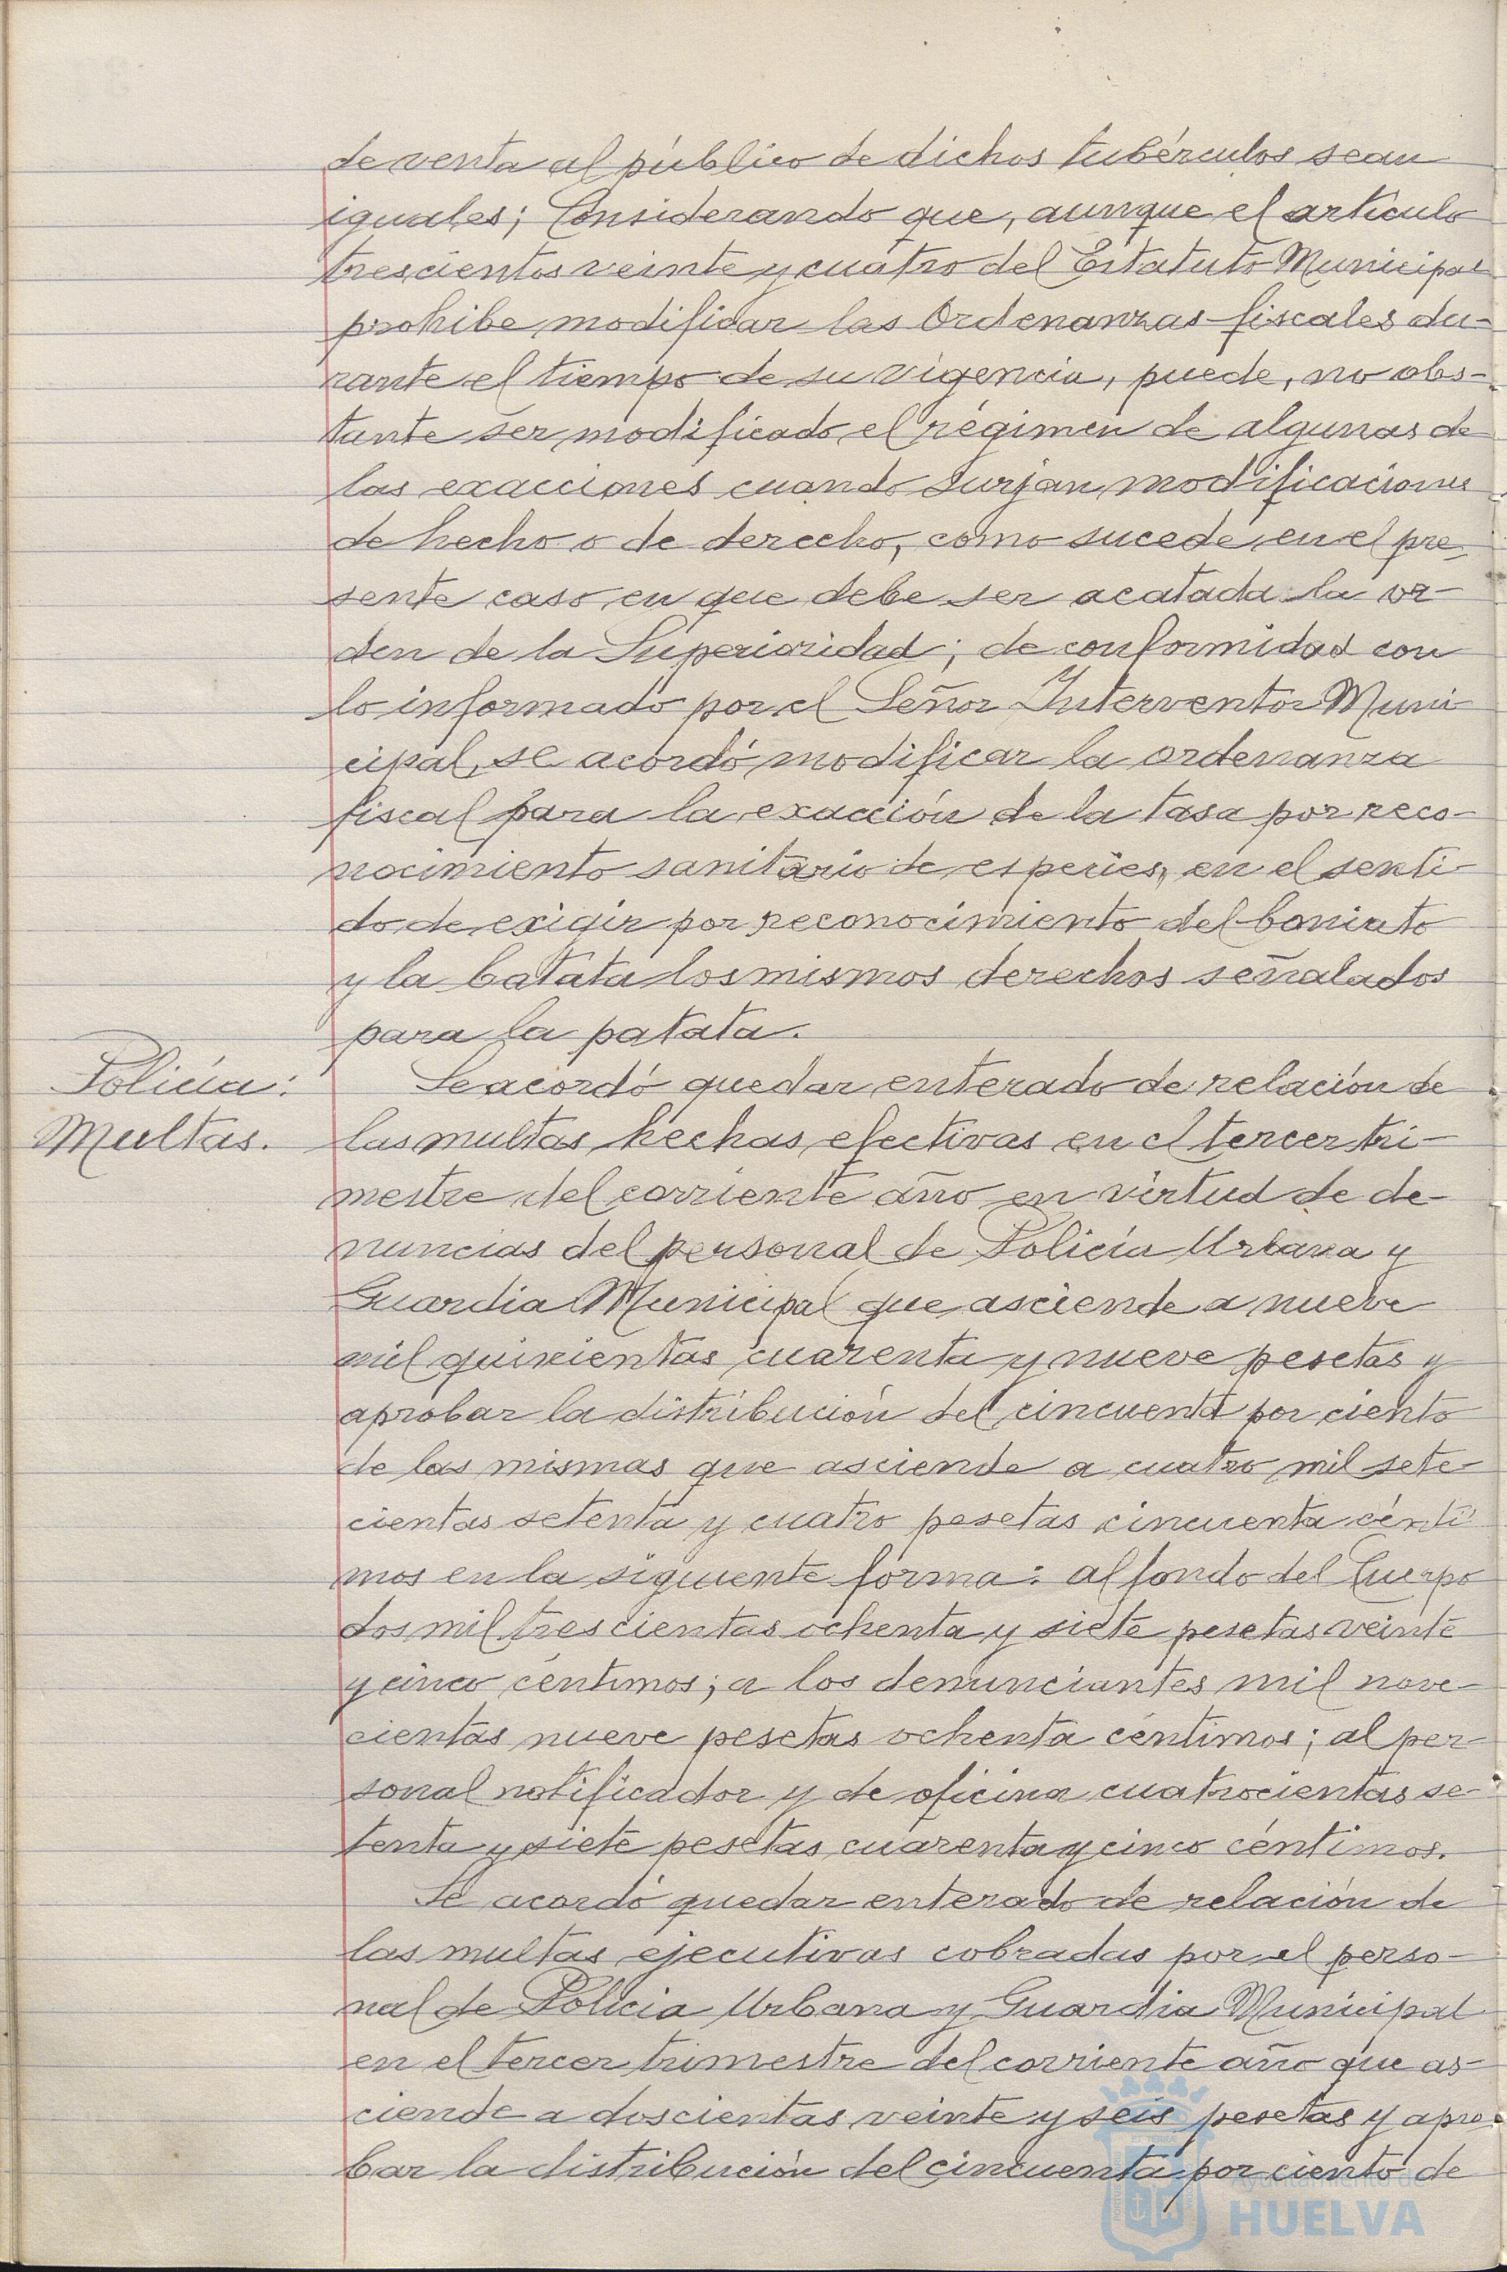 de venta al público de dichos tubérculos sean
iguales; Considerando que, aunque el artículo
trescientos veinte y cuatro del Estatuto Municipal
prohibe modificar las Ordenanzas fiscales du-
rante el tiempo de su vigencia, puede, no obs-
tante ser modificado el régimen de algunas de
las exacciones cuando surjan modificaciones
de hecho o de derecho, como sucede en el pre-
sente caso en que debe ser acatada la or-
den de la Superioridad; de conformidad con
lo informado por el Señor Interventor Muni-
cipal, se acordó modificar la ordenanza
fiscal para la exacción de la tasa por reco-
nocimiento sanitario de especies, en el senti-
do de exigir por reconocimiento del boniato
y la batata los mismos derechos señalados
para la patata.
Policía:
Multas.
Se acordó quedar enterado de relación de
las multas hechas efectivas en el tercer tri-
mestre del corriente año en virtud de de-
nuncias del personal de Policía Urbana y
Guardia Municipal que asciende a nueve
mil quinientas cuarenta y nueve pesetas y
aprobar la distribución del cincuenta por ciento
de las mismas que asciende a cuatro mil sete-
cientas setenta y cuatro pesetas cincuenta cénti-
mos en la siguiente forma: al fondo del Cuerpo
dos mil trescientas ochenta y siete pesetas veinte
y cinco céntimos; a los denunciantes mil nove-
cientas nueve pesetas ochenta céntimos; al per-
sonal notificador y de oficina cuatrocientas se-
tenta y siete pesetas cuarenta y cinco céntimos.
Se acordó quedar enterado de relación de
las multas ejecutivas cobradas por el perso-
nal de Policía Urbana y Guardia Municipal
en el tercer trimestre del corriente año que as-
ciende a doscientas veinte y seis pesetas y apro-
bar la distribución del cincuenta por ciento de
Ayuntamiento de
HUELVA